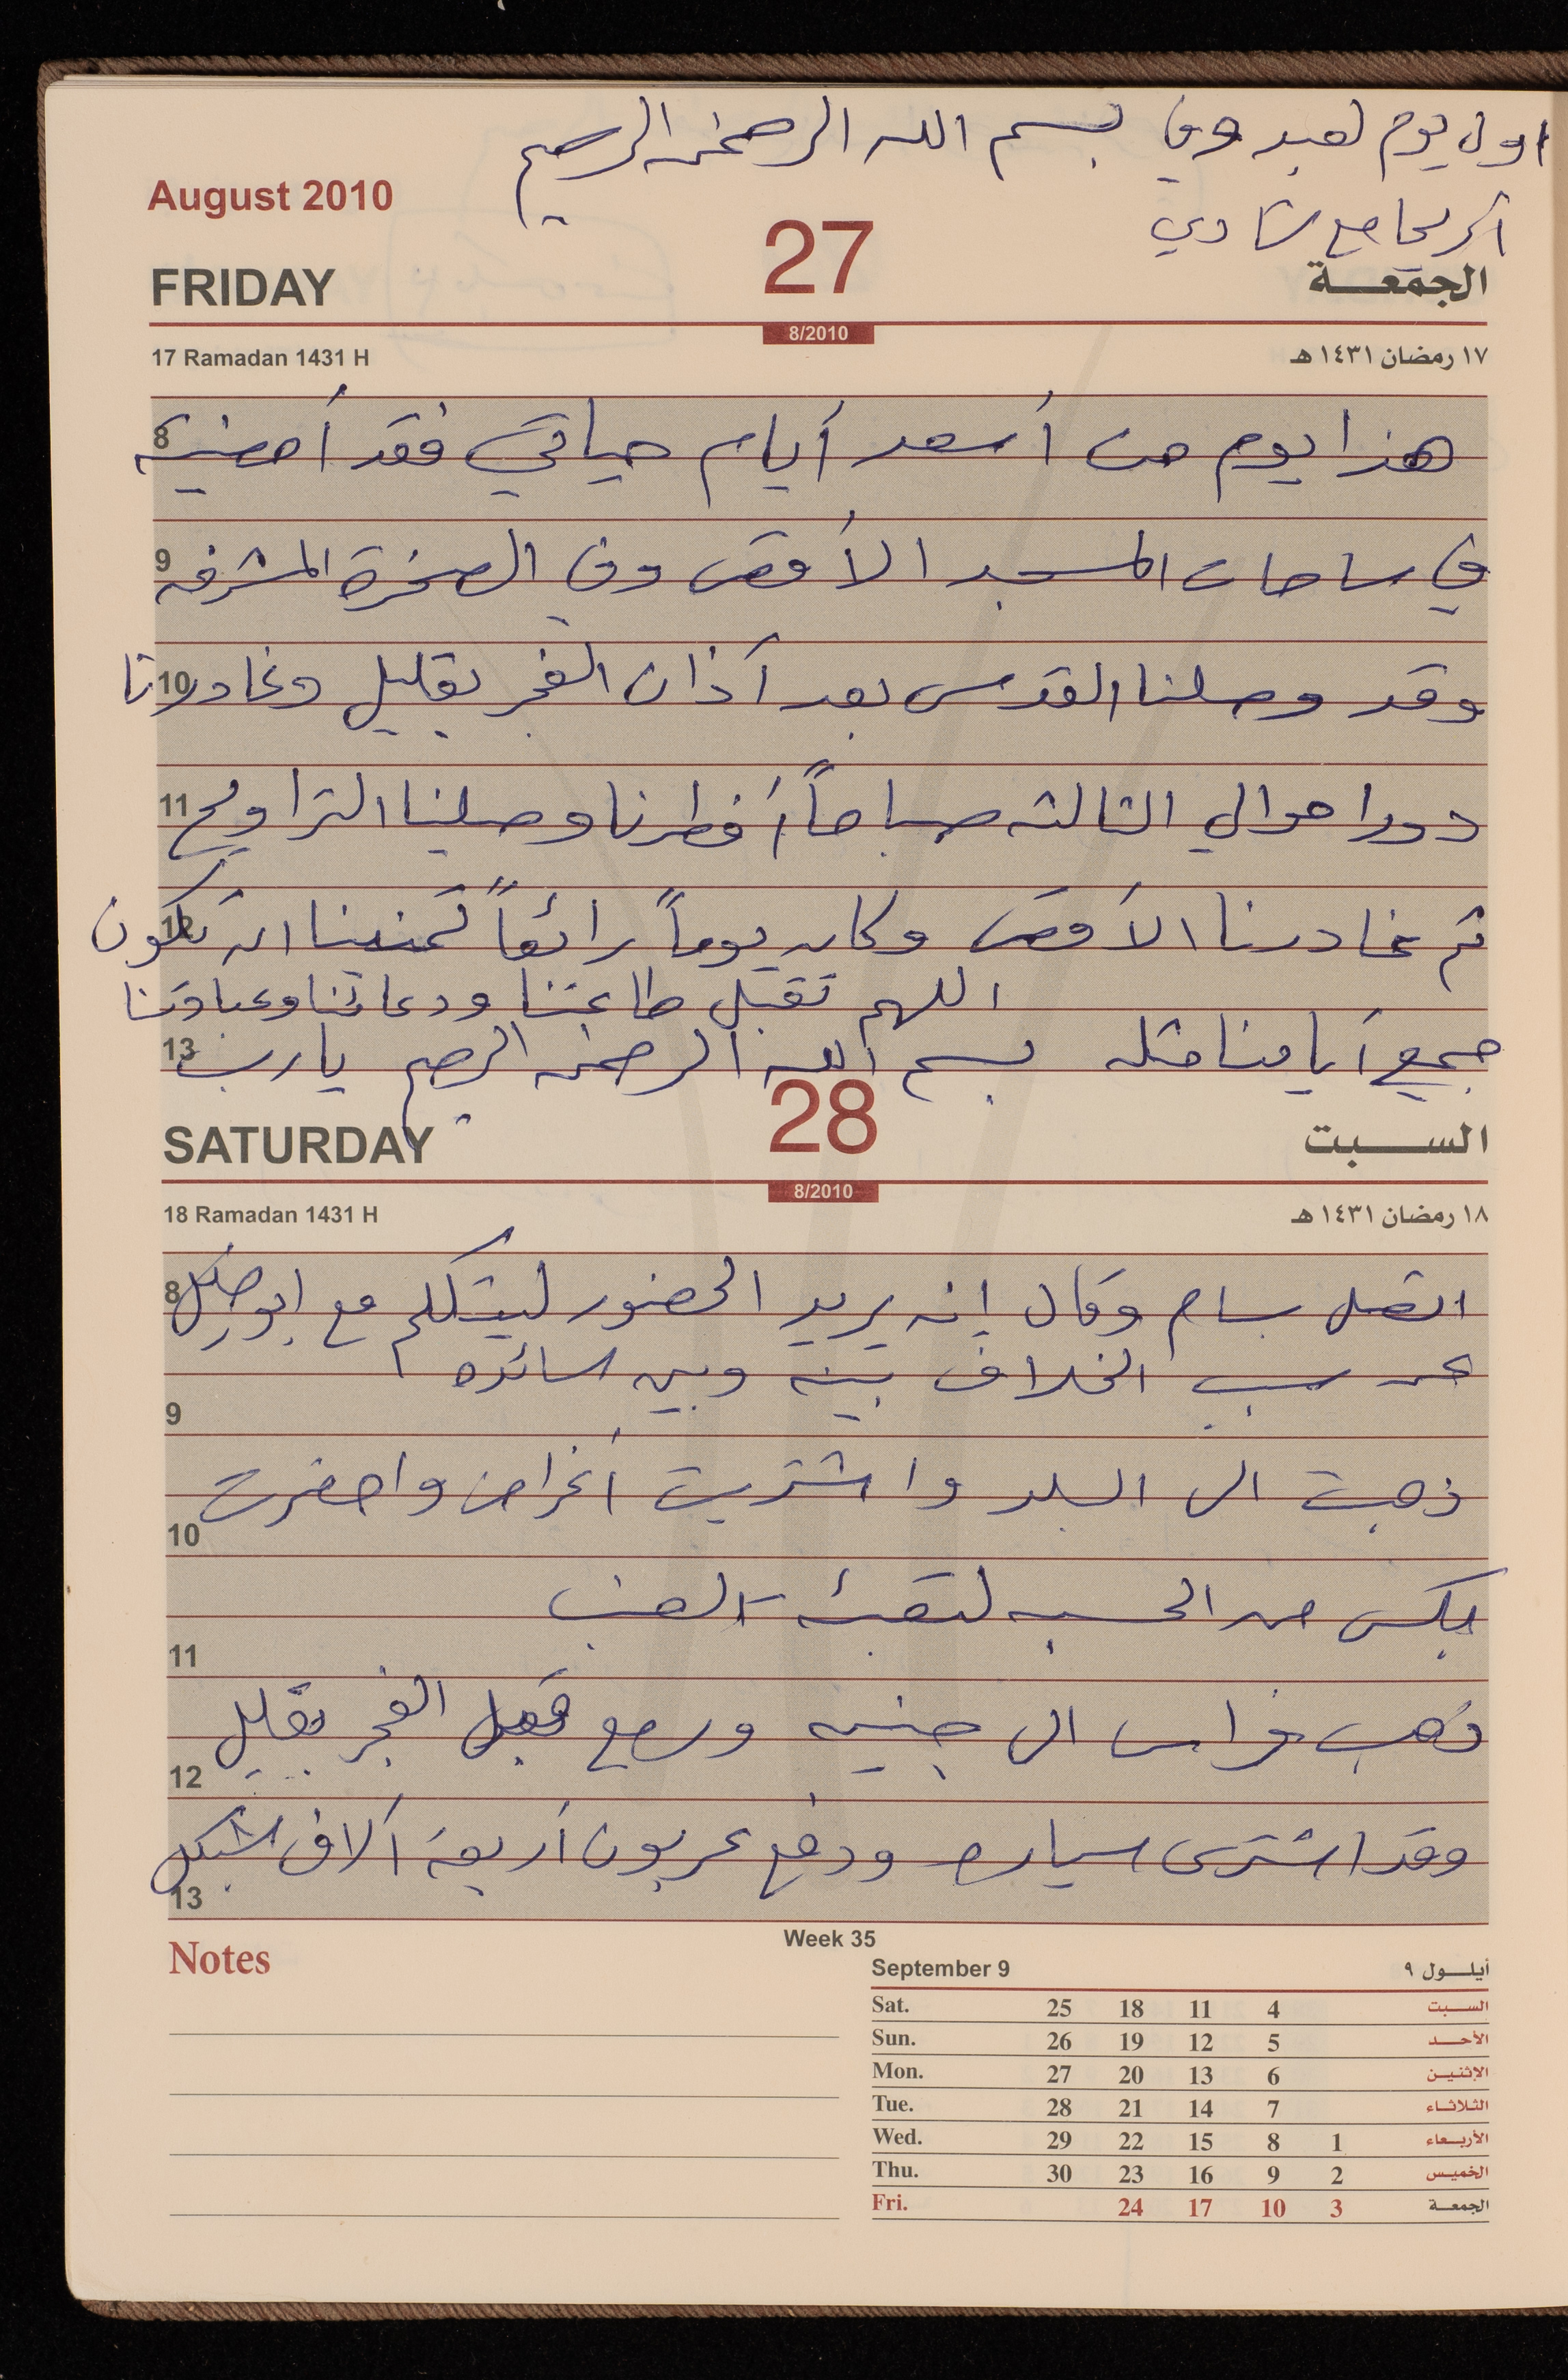 اول يوم لعبد وفي بسم الله الرحمن الرحيم
أريحا مع شادي
August 2010
27
FRIDAY
الجمعة
8/2010
17 Ramadan 1431 H
١٧ رمضان ١٤٣١ هـ
8 هذا يوم من أسعد أيام حياتي فقد أمضيته
9 في ساحات المسجد الأقصى وفي الصخرة المشرفه
10 وقد وصلنا القدس بعد آذان الفجر بقليل وغادرنا
11 دورا حوالي الثالثه صباحاً أفطرنا وصلينا التراويح
12 ثم غادرنا الأقصى وكان يوماً رائعاً تمنينا ان تكون
اللهم تقبل طاعتنا ودعائنا وعبادتنا
13 جميع أيامنا مثله بسم الله الرحمن الرحيم يا رب
28
SATURDAY
السبت
8/2010
18 Ramadan 1431 H
١٨ رمضان ١٤٣١ هـ
8 اتصل بسام وقال إنه يريد الحضور ليتكلم مع ابو
عن سبب الخلاف بينه وبين
9
ذهبت الى البلد واشتريت أغراض واحضرت
10
بكس من الحسبه لتعبئة العنب
11
ذهب فراس الى جنين ورجع قبل الفجر بقليل
12
وقد اشترى سياره ودفع عربون أربعة آلاف شيكل
13
Notes
Week 35
September 9
أيلول ٩
Sat. 25 18 11 4 السبت
Sun. 26 19 12 5 الأحد
Mon. 27 20 13 6 الإثنين
Tue. 28 21 14 7 الثلاثاء
Wed. 29 22 15 8 1 الأربعاء
Thu. 30 23 16 9 2 الخميس
Fri. 24 17 10 3 الجمعة